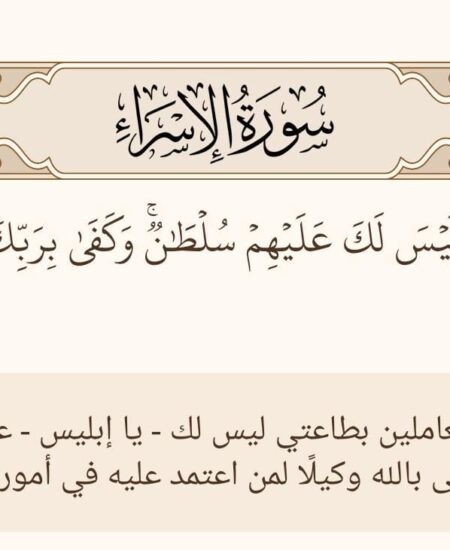 سُورَةُ الإِسۡرَاءِ
لَيۡسَ لَكَ عَلَيۡهِمۡ سُلۡطَٰنٞۚ وَكَفَىٰ بِرَبِّكَ
بطاعتي ليس لك - يا إبليس -
بالله وكيلًا لمن اعتمد عليه في